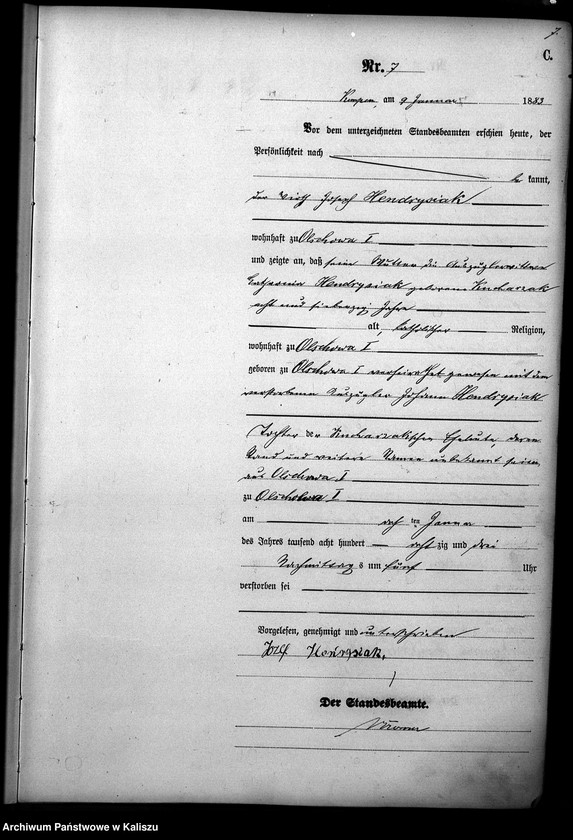 7.
C.
Nr. 7
Kempen, am 9 Januar 1883
Vor dem unterzeichneten Standesbeamten erschien heute, der
Persönlichkeit nach
be kannt,
der Wirth Joseph Hendrysiak
wohnhaft zu Olschowa I
und zeigte an, daß seine Mutter die Auszüglerwittwe
Catharina Hendrysiak geborene Kucharzak
acht und siebenzig Jahre
alt, katholischer Religion,
wohnhaft zu Olschowa I
geboren zu Olschowa I verheirathet gewesen mit dem
verstorbenen Auszügler Johann Hendrysiak
Tochter der Kucharzakschen Eheleute deren
Stand und weitere Namen unbekannt seien,
aus Olschowa I
zu Olschowa I
am ten Januar
des Jahres tausend acht hundert acht zig und drei
Nachmittag s um fünf Uhr
verstorben sei
Vorgelesen, genehmigt und unterschrieben
Józef Hendrysiak,
Der Standesbeamte.
Archiwum Państwowe w Kaliszu